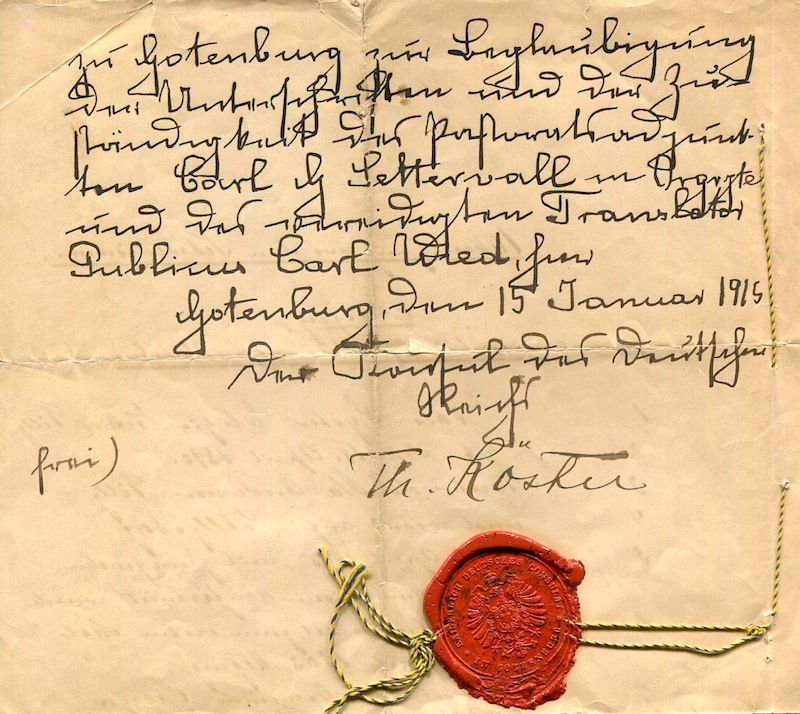 zu Gotenburg zur Beglaubigung
der Unterschriften und der Zu-
ständigkeit des Pastoratsadjunk-
ten Carl G Settervall in Örgryte
und des vereidigten Translator
Publicus Carl Wied, hier
Gotenburg, den 15 Januar 1915
Der Konsul des Deutschen
Reichs
Th. Köster
frei)
KAISERLICH DEUTSCHES CONSULAT
IN GOTHENBURG